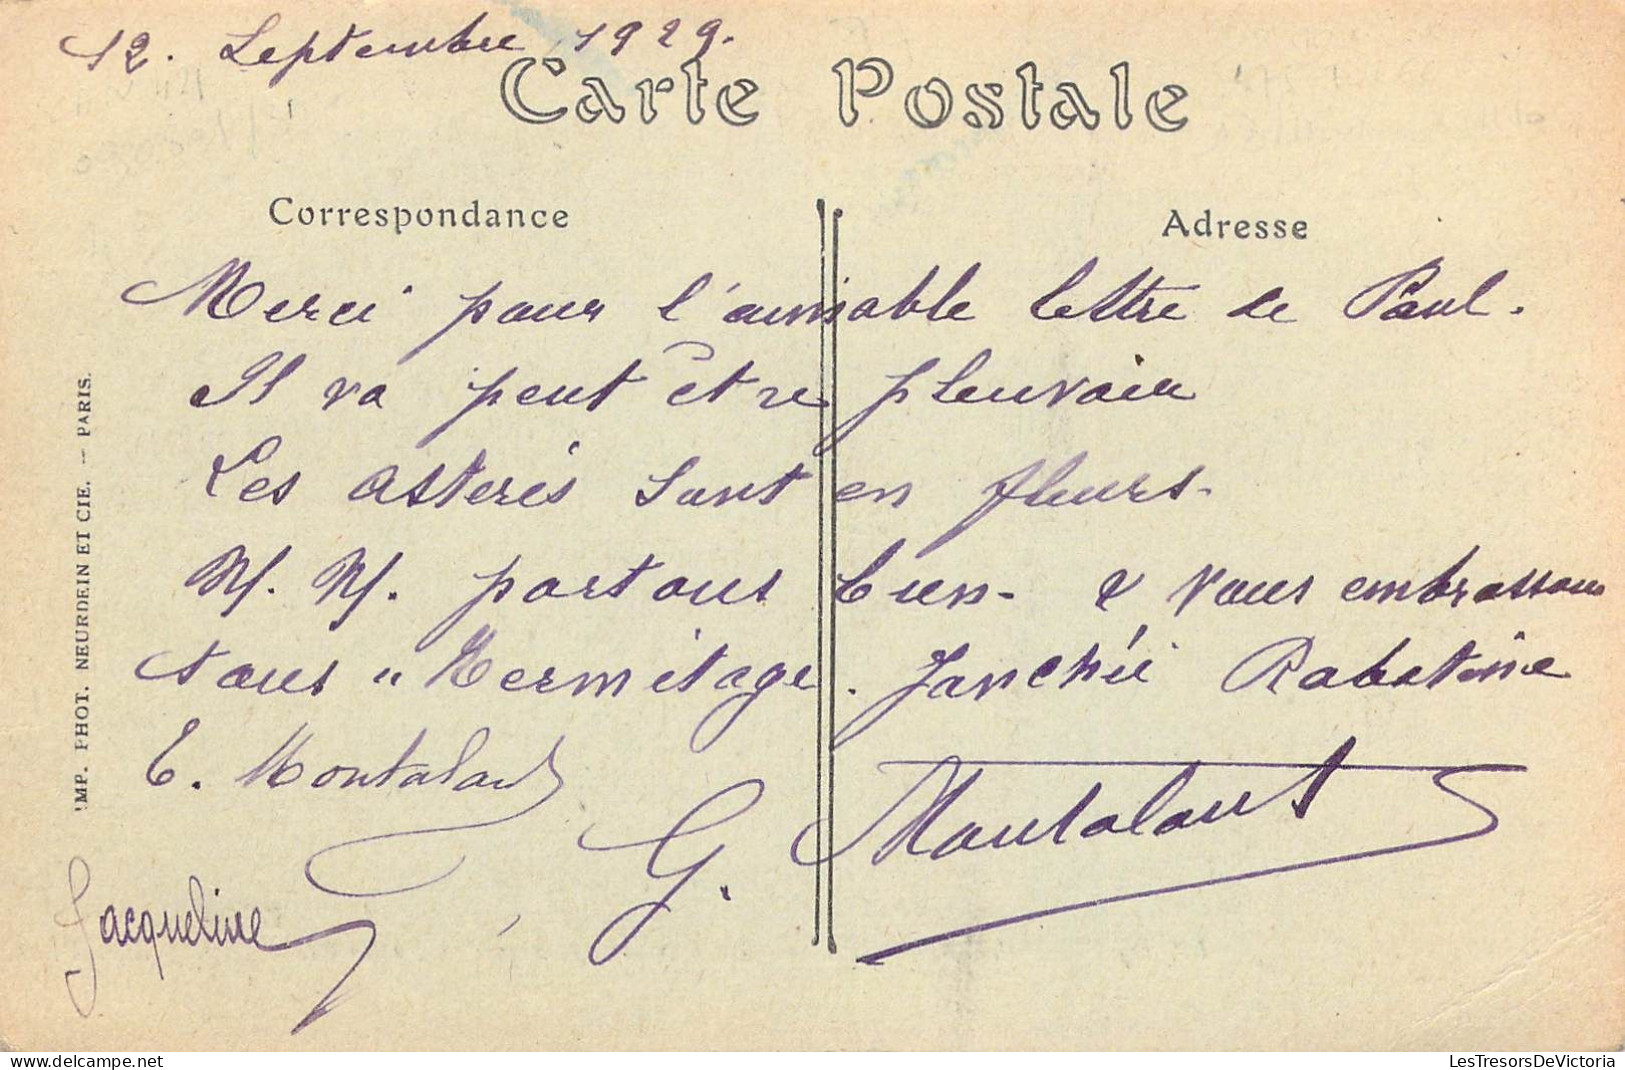 12. Septembre 1929.
Carte Postale
Correspondance
Adresse
Merci pour l'aimable lettre de Paul.
Il va peut être pleuvoir
Les asteres sont en fleurs.
N. N. portons bien - & vous embrassons
tous "Hermitage. Rabatinie
E. Montalant
G. Montalant
Jacqueline
IMP. PHOT. NEURDEIN ET CIE. — PARIS.
www.delcampe.net
LesTresorsDeVictoria